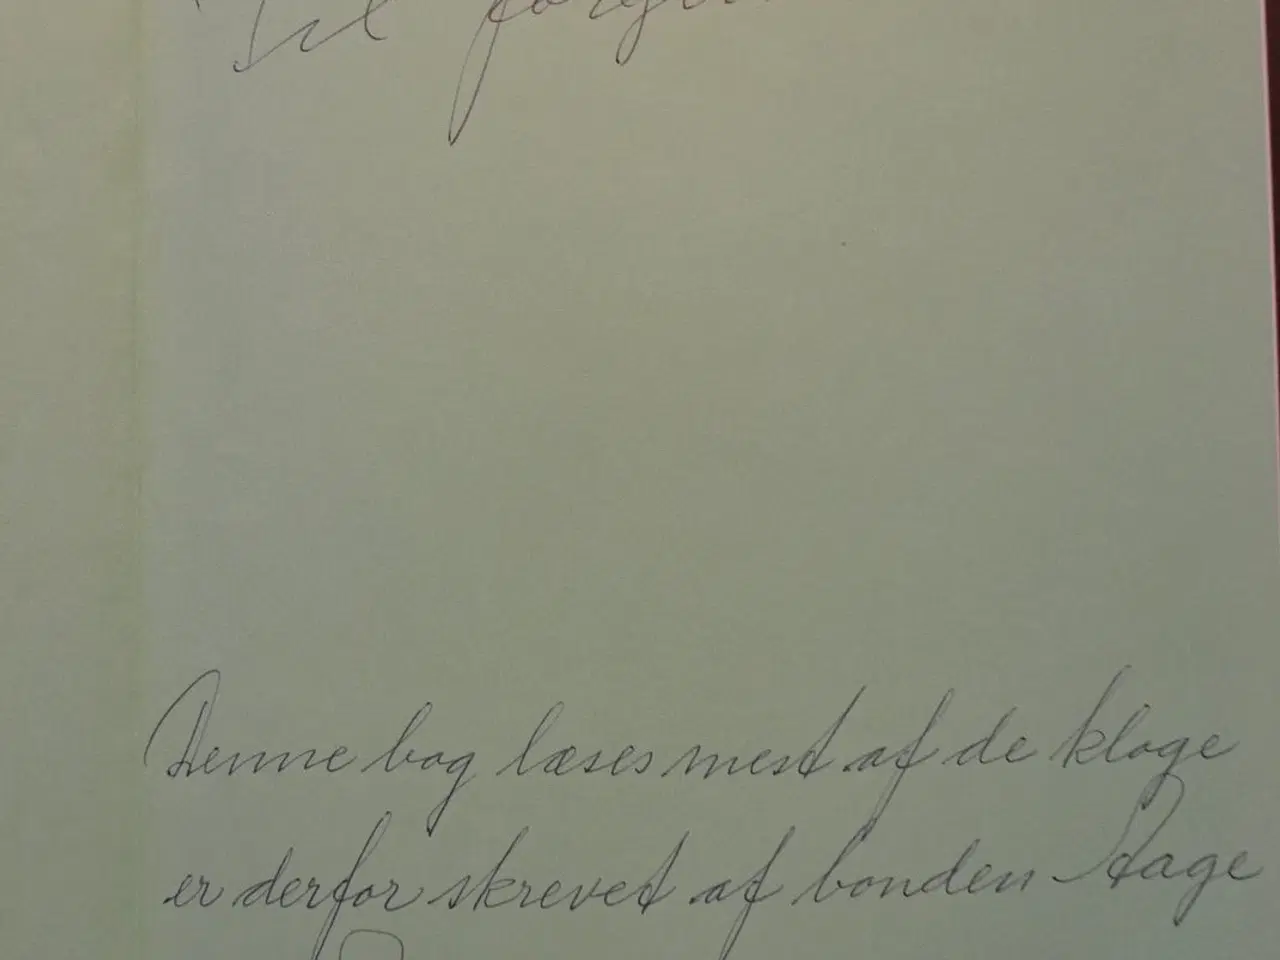 Til
Denne bog læses mest af de kloge
er derfor skrevet af bonden Aage